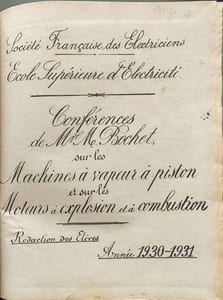 Société Française des Electriciens
Ecole Supérieure d'Electricité
Conférences
de Mr. M. Bochet.
sur les
Machines à vapeur à piston
et sur les
Moteurs à explosion et à combustion
Rédaction des Elèves
Année 1930-1931